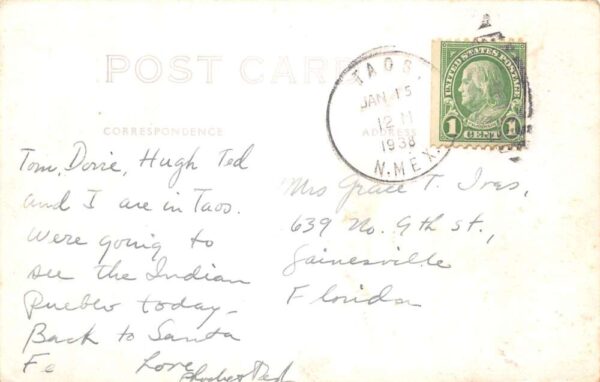 POST CARD
CORRESPONDENCE
ADDRESS
TAOS.
JAN 15
12 M
1938
N. MEX.
UNITED STATES POSTAGE
FRANKLIN
1 CENT 1
Tom, Dorie, Hugh Ted
and I are in Taos.
We're going to
see the Indian
Pueblo today -
Back to Santa
Fe Love
Ted
Mrs Grace T. Ives,
639 No. 9th st.,
Gainesville
Florida